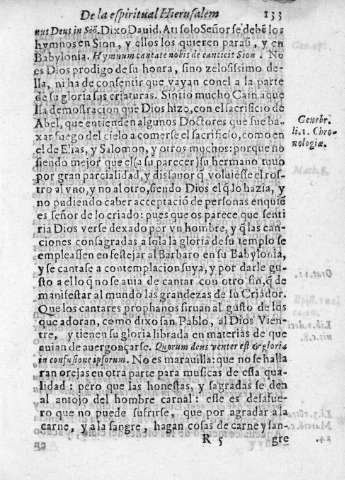 De la espiritual Hierusalem 133
nus Deus in Sion. Dixo Dauid. A ti solo Señor se debē los
hymnos en Sion, y ellos los quieren para si, y en
Babylonia. Hymnum cantate nobis de canticis Sion. No
es Dios prodigo de su honra, sino zelosissimo de-
lla, ni ha de consentir que vayan con el a la parte
de su gloria sus criaturas. Sintio mucho Cain aque
lla demostracion que Dios hizo, con el sacrificio de
Abel, que entienden algunos Doctores que fue ba-
xar fuego del cielo a comerse el sacrificio, como en
el de Elias, y Salomon, y otros muchos: porque no
siendo mejor que el a su parecer su hermano tuuo
por gran parcialidad, y disfauor q̃ voluiesse el ros-
tro al vno, y no al otro, siendo Dios el q̃ lo hazia, y
no pudiendo caber acceptació de personas en quié
es señor de lo criado: pues que os parece que senti
ria Dios verse dexado por vn hombre, y q̃ las can-
ciones consagradas a sola la gloria de su templo se
empleassen en festejar al Barbaro en su Babylonia,
y se cantasse a contemplacion suya, y por darle gus-
to a ello q̃ no se auia de cantar con otro fin, q̃ de
manifestar al mundo las grandezas de su Criador.
Que los cantares prophanos siruan al gusto de los
que adoran, como dixo san Pablo, al Dios Vien-
tre, y tienen su gloria librada en materias de que
auian de auergonçarse. Quorum deus venter est & gloria
in confusione ipsorum. No es marauilla: que no se halla
ran orejas en otra parte para musicas de essa qua
lidad: pero que las honestas, y sagradas se den
al antojo del hombre carnal: esse es desafue-
ro que no puede sufrirse, que por agradar a la
carne, y a la sangre, hagan cosas de carne y san-
R 5 gre
Genebr.
li. 1. Chro-
nologiæ.